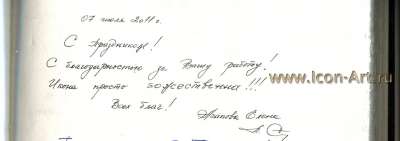 07 июля 2011 г.
С праздником!
С благодарностью за Вашу работу!
Иконы просто божественны!!!
www.Icon-Art.ru
Всех благ!
Елена